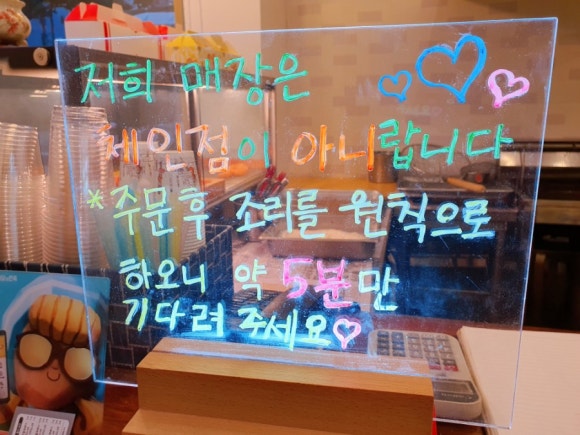 저희 매장은
체인점이 아니랍니다
*주문후 조리를 원칙으로
하오니 약 5분만
기다려 주세요